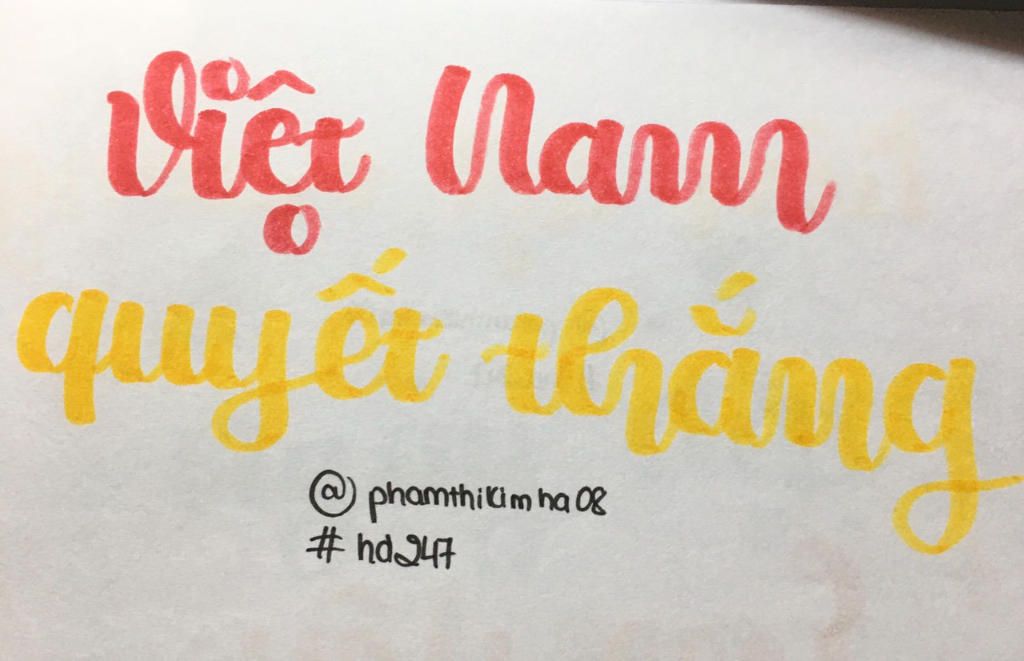 Việt Nam
quyết thắng
@phamthikimha08
#hd247